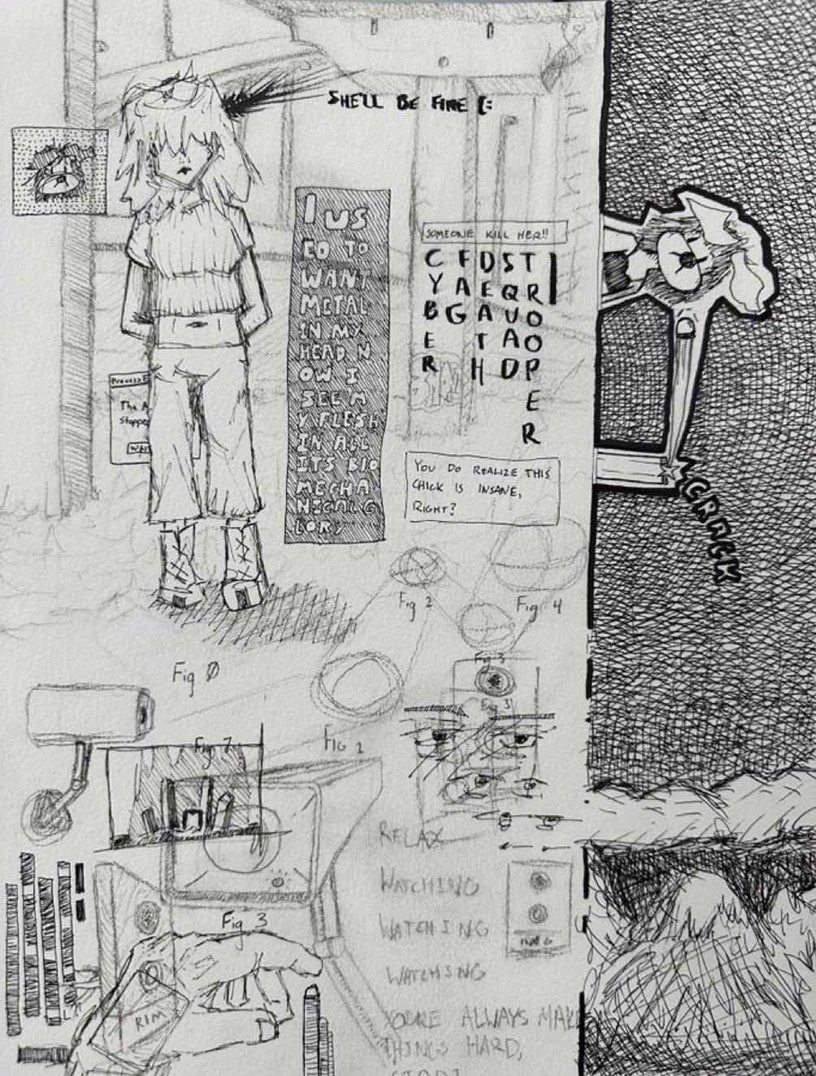 SHE'LL BE FINE [:
I US
ED TO
WANT
METAL
IN MY
HEAD N
OW I
SEE M
Y FLESH
IN ALL
ITS BIO
MECHA
NICAL G
LORY
SOMEONE KILL HER!!
CYBER
FAG
DEATH
SQUAD
TROOPER
YOU DO REALIZE THIS
CHICK IS INSANE,
RIGHT?
Process
The A
stopped
CRACK
Fig 2
Fig. 4
Fig 5
Fig 0
Fig 1
Fig 7
Fig 3
RELAX
WATCHING
WATCHING
WATCHING
YOU'RE ALWAYS MAKE
THINGS HARD,